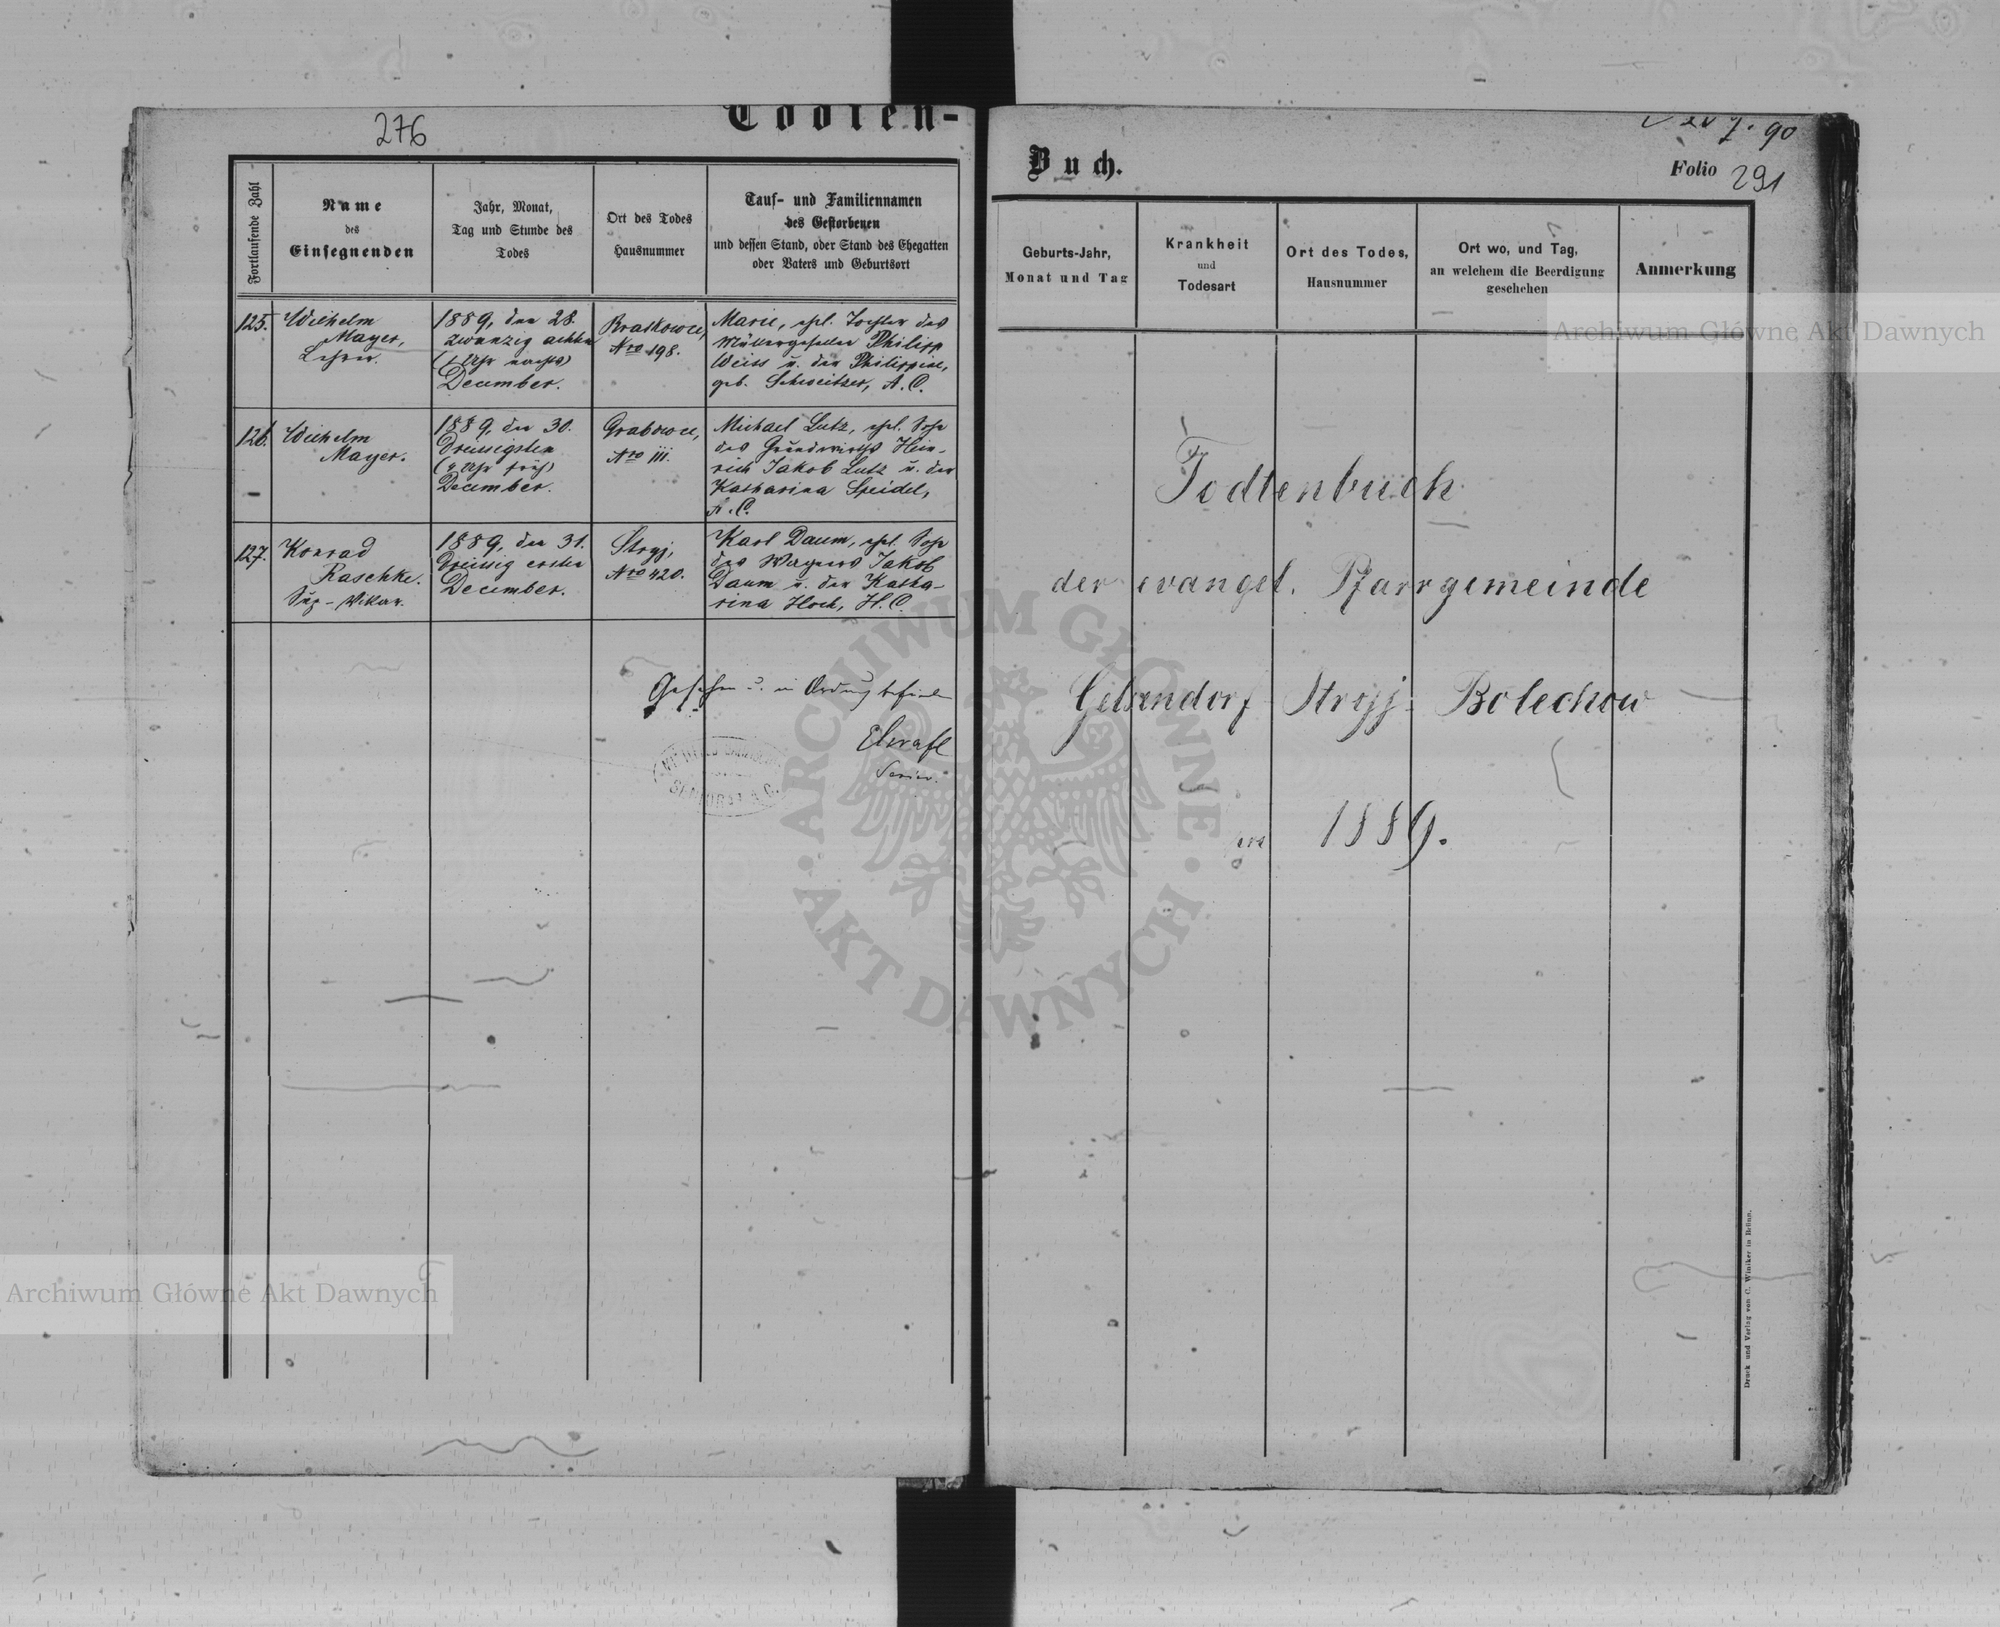 276
Todten-
Fortlaufende Zahl
Name
des
Einsegnenden
Jahr, Monat,
Tag und Stunde des
Todes
Ort des Todes
Hausnummer
Tauf- und Familiennamen
des Gestorbenen
und dessen Stand, oder Stand des Ehegatten
oder Vaters und Geburtsort
125.
Wilhelm
Mayer,
Lehrer.
1889, den 28.
zwanzig achten
(1 Uhr nachts)
December.
Nro 198.
Marie, ehl. Tochter des
Müllergesellen Philipp
Weiss u. der Philippine,
geb. Schweitzer, A. C.
126.
Wilhelm
Mayer.
1889, den 30.
Dreissigsten
Uhr früh)
December.
Grabowce,
Nro 111.
Michael Lutz, ehl. Sohn
des Grundwirths Hein-
rich Jakob Lutz u. der
Katharina Speidel,
A. C.
127.
Konrad
Raschke.
Vikar.
1889, den 31.
Dreissig ersten
December.
Stryj,
Nro 420.
Karl Daum, ehl. Sohn
des Wagners Jakob
Daum u. der Katha-
rina Hoch, H. C.
Gesehen u. in Ordnung befunden
Senior.
Buch.
90
Folio 291
Geburts-Jahr,
Monat und Tag
Krankheit
und
Todesart
Ort des Todes,
Hausnummer
Ort wo, und Tag,
an welchem die Beerdigung
geschehen
Anmerkung
Todtenbuch
der evangel. Pfarrgemeinde
Gelsendorf Stryj- Bolechow
1889.
Druck und Verlag von C. Winiker in Brünn.
Archiwum Główne Akt Dawnych
Archiwum Główne Akt Dawnych
ARCHIWUM GŁÓWNE · AKT DAWNYCH ·